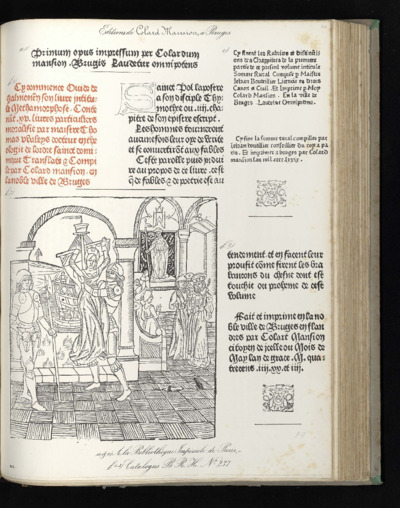 Editions de Colard Mansion, a Bruges
Primum opus impressum per Colardum
mansion. Brugis Laudetur omnipotens
Cy commence Ouide de
salmonen son liure intitu
le Methamorphose. Conte
nāt .xv. liures particuliers
moralisie par maistre Tho
mas waleys docteur en the
ologie de lordre saint domi
nique Translate & Compi
le par Colard mansion. en
la noble ville de Bruges
Saint Pol lapostre
a son disciple Thy
mothee ou .iiij. cha
pitre de son epistre escript.
Les hommes tourneront
aucunesfois leur oye de verite
et se conuertirōt aux fables
Ceste parolle puis ie dui
re au propos de ce liure. Cest
q̄ de fables & de poeterie est au
Cy finent les Rubrices
des Chappitres de la premiere
partie de ce present volume intitule
Somme Rural Compose p Maistre
Jehan Boutillier Licencie es Drois
Canon et Ciuil. Et Imprime p Moy
Colard Mansion. En la ville de
Bruges. Laudetur Omnipotens.
Cy fine la somme rural compillee par
Jehan boutillier conseillier du roy a pa
ris. Et imprimee a bruges par colard
mansion lan mil cccc lxxix.
tendement. et en facent leur
prouffit cōme firent les Gra
uueurs du chesne dont est
touchie ou proheme de cest
volume
Fait et imprime en la no
ble ville de Bruges en flan
dres par Colart Mansion
citoyen de icelle ou Mois de
May lan de grace .M. qua
trecens .iiij.xx. et iiij.
à la Bibliothèque Imperiale de Paris
Catalogus B. R. H. N° 277